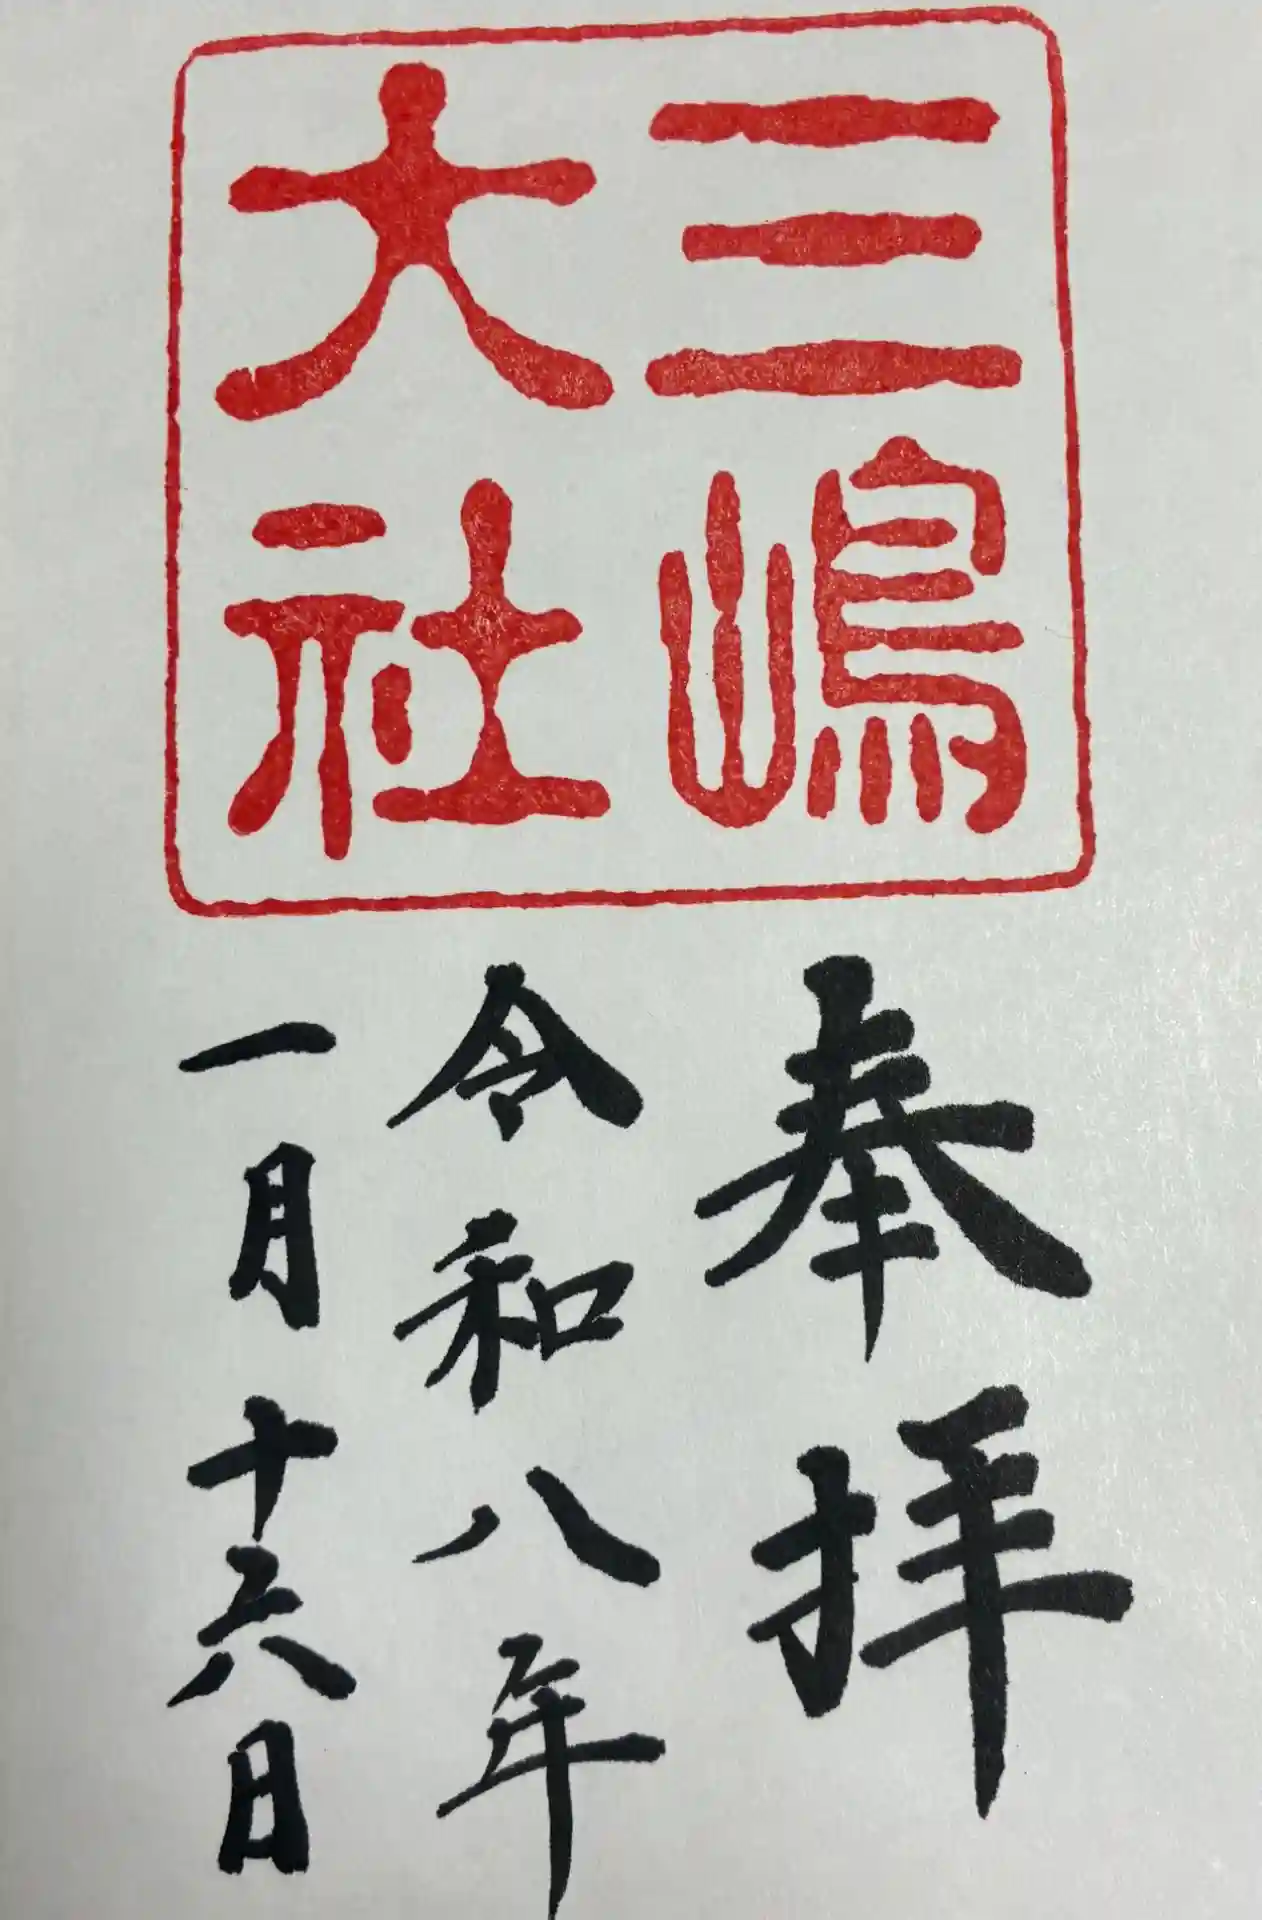 三嶋
大社
奉拝
令和八年
一月十六日